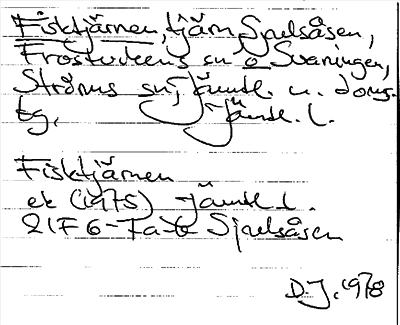 Fisktjärnen, tjärn, Spelsåsen,
Frostvikens sn o Svaningen,
Ströms sn, Jämtl. n. doms.
tg, Jämtl. l.
Fisktjärnen
ek (1975) Jämtl. l.
21F 6-7a-b Spelsåsen
D.J. 1978